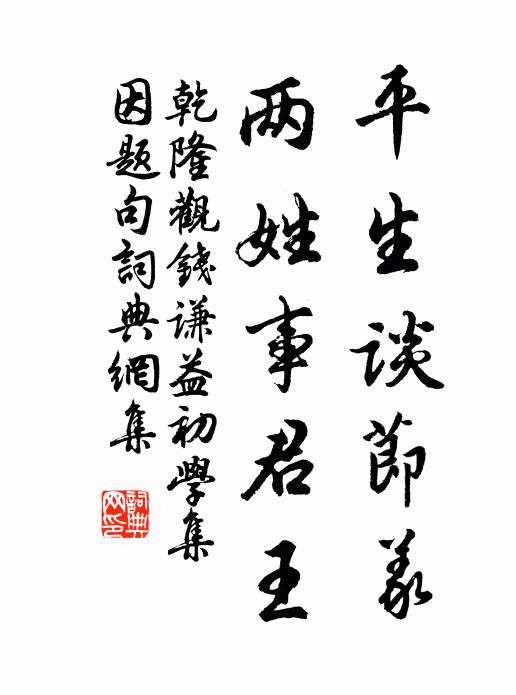 平生談節義
两姓事君王
乾隆觀錢謙益初學集
因題句詞典網集
詞典
网印